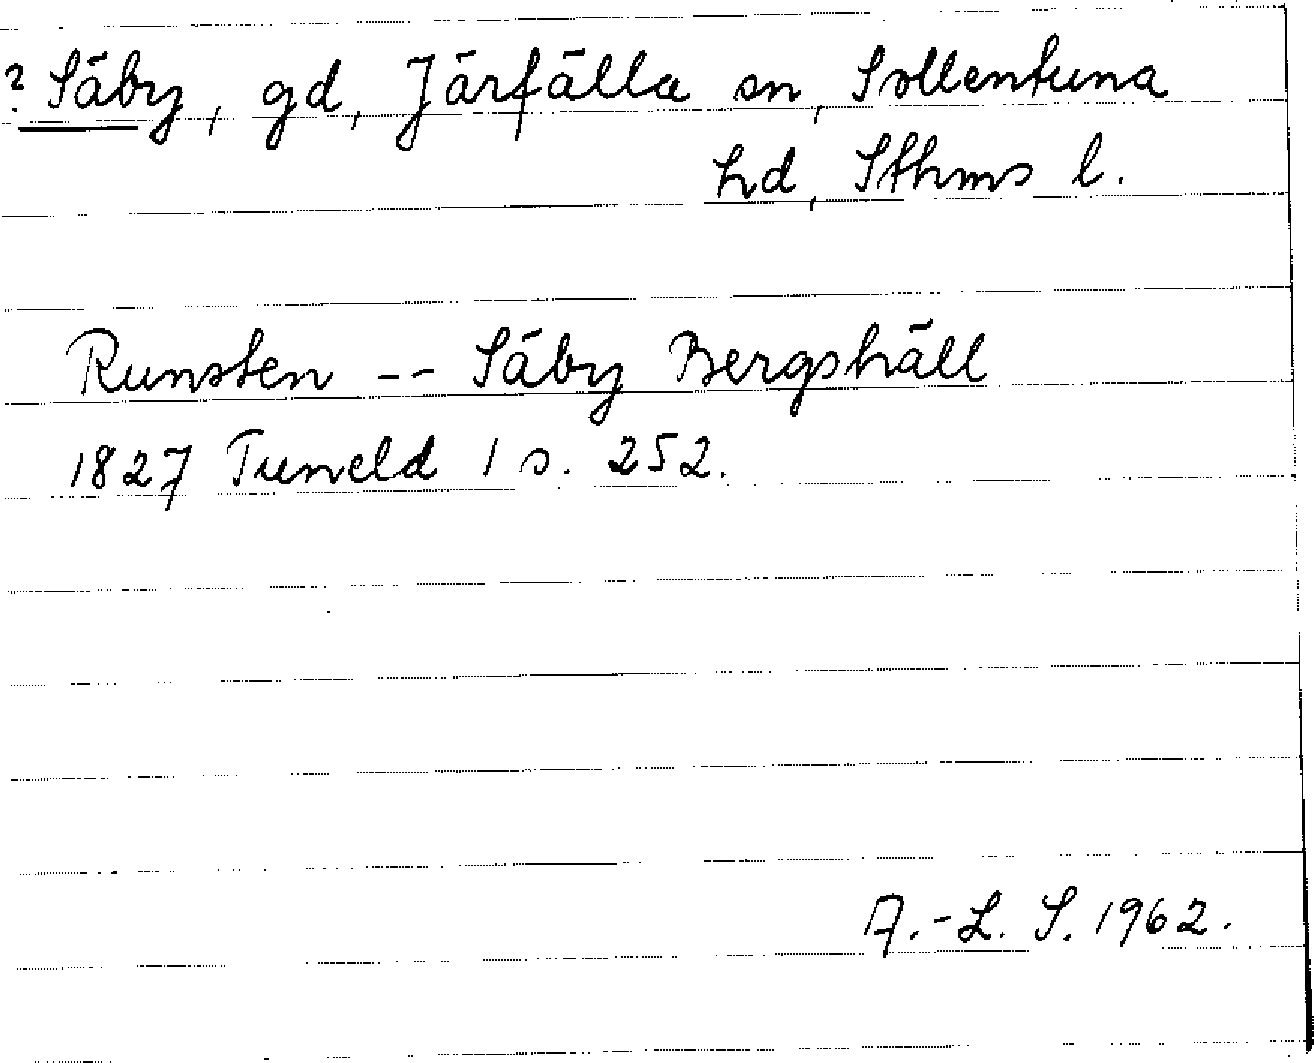 ? Säby, gd, Järfälla sn, Sollentuna
hd, Sthms l.
Runsten -- Säby Bergshäll
1827 Tuneld 1 s. 252.
A.-L. S. 1962.